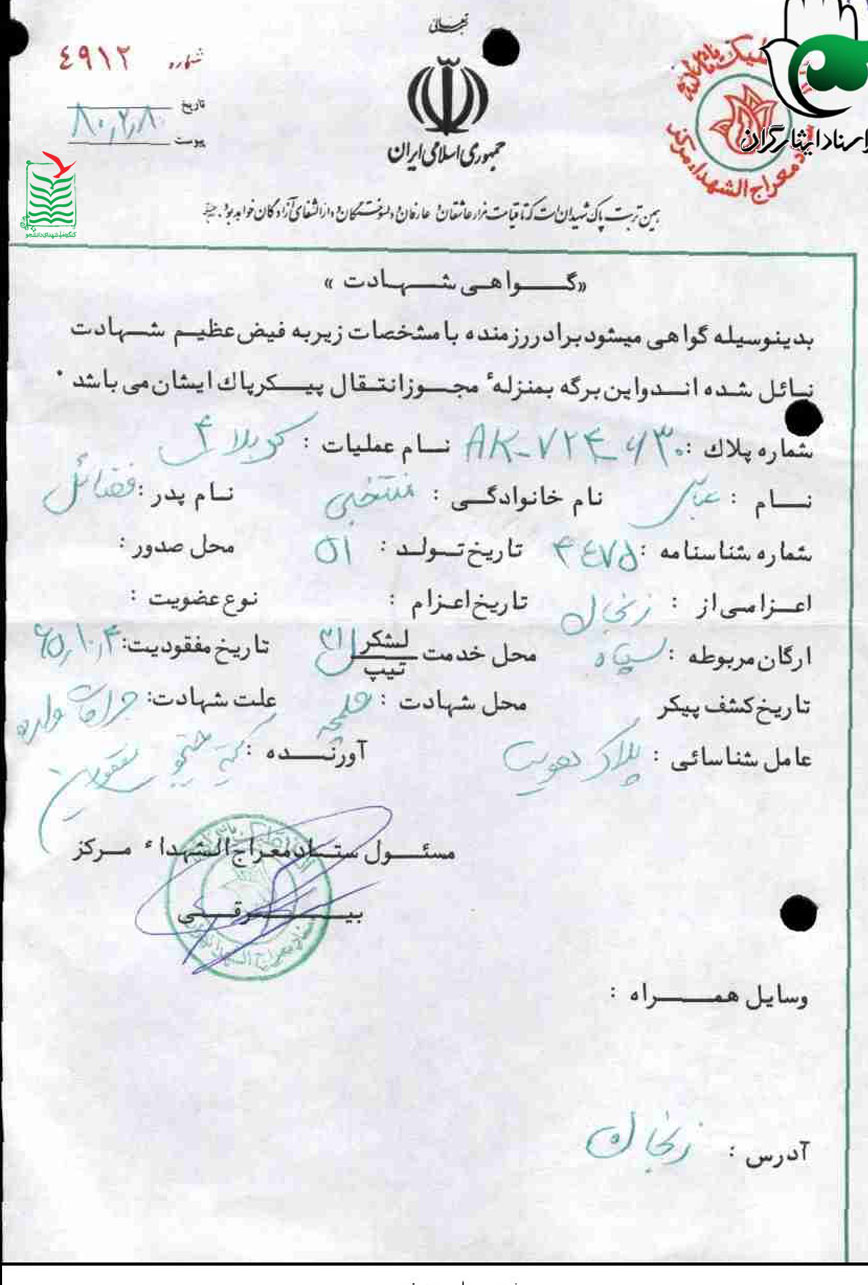 بسمه تعالی
شماره ٤٩١٢
تاریخ ۸۰,۲,۸
پیوست
جمهوری اسلامی ایران
اسناد ایثارگران
ستاد معراج الشهداء مرکز
همین تربت پاک شهیدان است که تا قیامت مزار عاشقان و عارفان و دلسوختگان و دارالشفای آزادگان خواهد بود.
«گواهی شهادت»
بدینوسیله گواهی میشود برادر رزمنده با مشخصات زیر به فیض عظیم شهادت
نائل شده اند و این برگه بمنزلهٔ مجوز انتقال پیکر پاک ایشان می باشد
شماره پلاك : AK-۷۲۴-۶۳۰ نام عملیات : کربلا ۴
نام : عباس نام خانوادگی : منتخبی نام پدر : فضائل
شماره شناسنامه : ۴٤۷۵ تاریخ تولد : ۵۱ محل صدور :
اعزامی از : زنجان تاریخ اعزام : نوع عضویت :
ارگان مربوطه : سپاه محل خدمت لشکر تیپ ۳۱ تاریخ مفقودیت : ۶۵,۱۰,۴
تاریخ کشف پیکر محل شهادت : شلمچه علت شهادت : جراحات وارده
عامل شناسائی : پلاک هویت آورنده : کمیته جستجو مفقودین
مسئول ستاد معراج الشهداء مرکز
بیرقی
وسایل همراه :
آدرس : زنجان